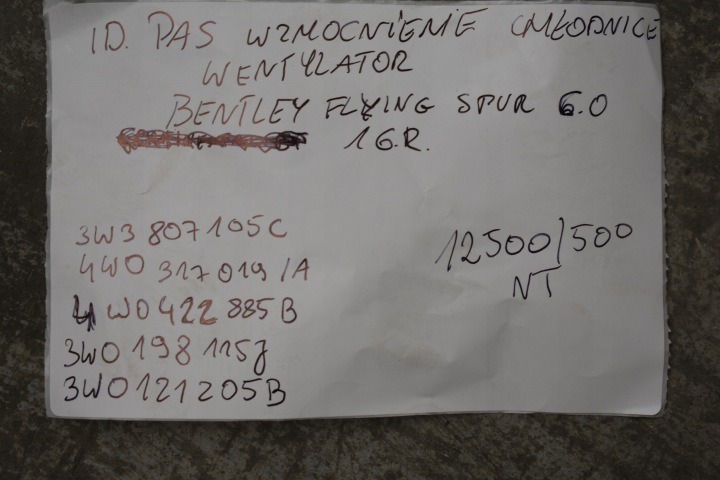 1D. PAS WZMOCNIENIE CHŁODNICE
WENTYLATOR
BENTLEY FLYING SPUR 6.0
16.R.
3W3 807 105C
4W0 317 019 /A
4W0 422 885B
3W0 198 115J
3W0 121 205B
12500/500
NT